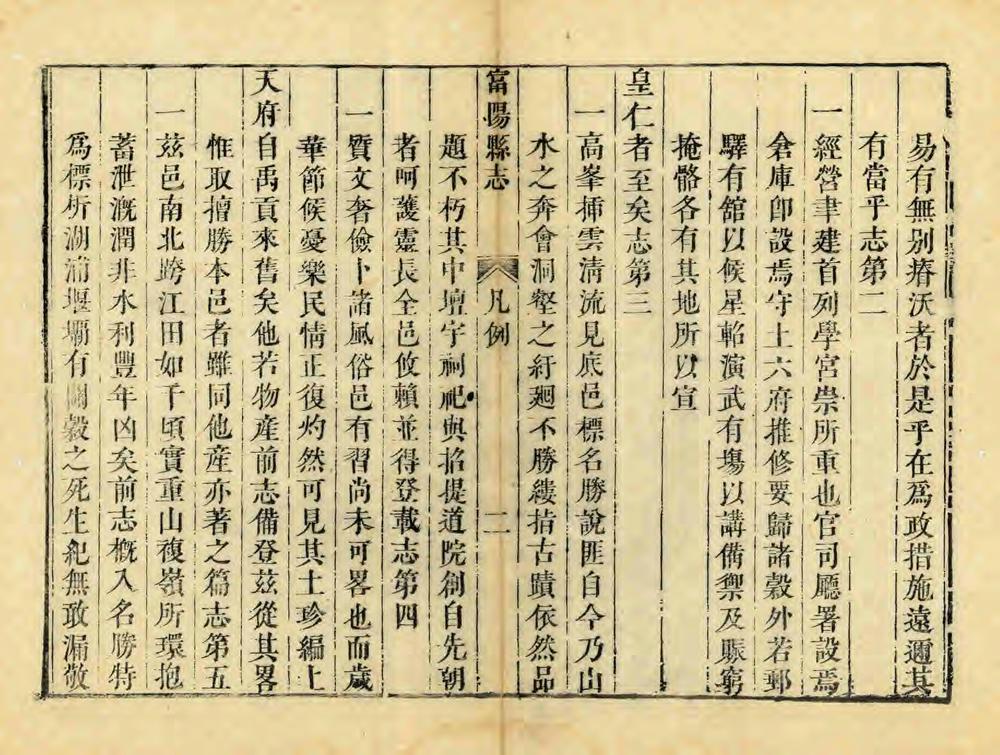 易有無別瘠沃者於是乎在為政措施遠邇其
有當乎志第二
一經營聿建首列學宮崇所重也官司廳署設焉
倉庫卽設焉守土六府推修要歸諸穀外若郵
驛有舘以候星軺演武有塲以講備禦及賑窮
掩骼各有其地所以宣
皇仁者至矣志第三
一高峯揷雲淸流見底邑標名勝說匪自今乃山
水之奔會洞壑之紆廻不勝縷指古蹟依然品
富陽縣志 凡例 二
題不朽其中壇宇祠祀與招提道院創自先朝
者呵護靈長全邑攸賴並得登載志第四
一質文奢儉卜諸風俗邑有習尚未可畧也而歲
華節候憂樂民情正復灼然可見其土珍編上
天府自禹貢來舊矣他若物産前志備登茲從其畧
惟取擅勝本邑者雖同他産亦著之篇志第五
一茲邑南北跨江田如千頃實重山複嶺所環抱
蓄泄漑潤非水利豐年凶矣前志槪入名勝特
為標析湖浦堰壩有關穀之死生紀無敢漏敬